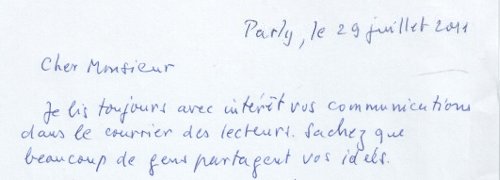 Parly, le 29 juillet 2011
Cher Monsieur
Je lis toujours avec intérêt vos communications
dans le courrier des lecteurs. Sachez que
beaucoup de gens partagent vos idées.